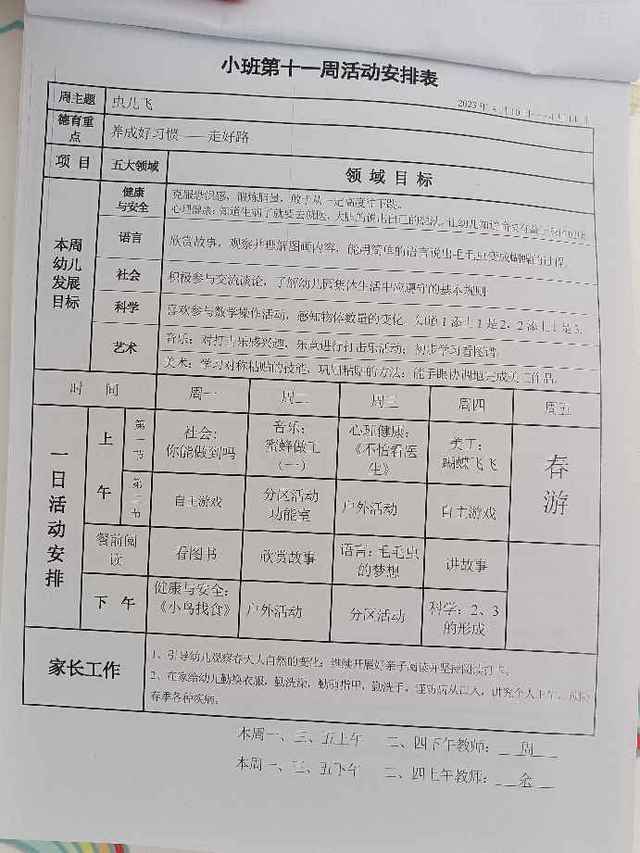 小班第十一周活动安排表
2023年4月10日—4月14日
周主题 虫儿飞
德育重点 养成好习惯——走好路
项目 五大领域 领域目标
本周幼儿发展目标
健康与安全 克服恐惧感,锻炼胆量,敢于从一定高度往下跳。
心理健康:知道生病了就要去就医,大胆的说出自己的想法,
语言 欣赏故事,观察并理解图画内容,能用简单的语言说出毛毛虫变成蝴蝶的过程。
社会 积极参与交流谈论,了解幼儿园集体生活中应遵守的基本规则
科学 喜欢参与数学操作活动,感知物体数量的变化,知道1添上1是2,2添上1是3。
艺术 音乐:对打击乐感兴趣,乐意进行打击乐活动;初步学习看图谱。
美术:学习对称粘贴的技能,巩固粘贴的方法;能手眼协调地完成美工作品。
时间 周一 周二 周三 周四 周五
一日活动安排
上午 第一节 社会:你能做到吗 音乐:蜜蜂做工(一) 心理健康:《不怕看医生》 美工:蝴蝶飞飞 春游
第二节 自主游戏 分区活动功能室 户外活动 自主游戏
餐前阅读 看图书 欣赏故事 语言:毛毛虫的梦想 讲故事
下午 健康与安全:《小鸟找食》 户外活动 分区活动 科学:2、3的形成
家长工作
1、引导幼儿观察春天大自然的变化;继续开展好亲子阅读并坚持阅读打卡。
2、在家给幼儿勤换衣服,勤洗澡,勤剪指甲,勤洗手,谨防病从口入,讲究个人卫生,预防
春季各种疾病。
本周一、三、五上午 二、四下午教师:__周__
本周一、三、五下午 二、四上午教师:__金__